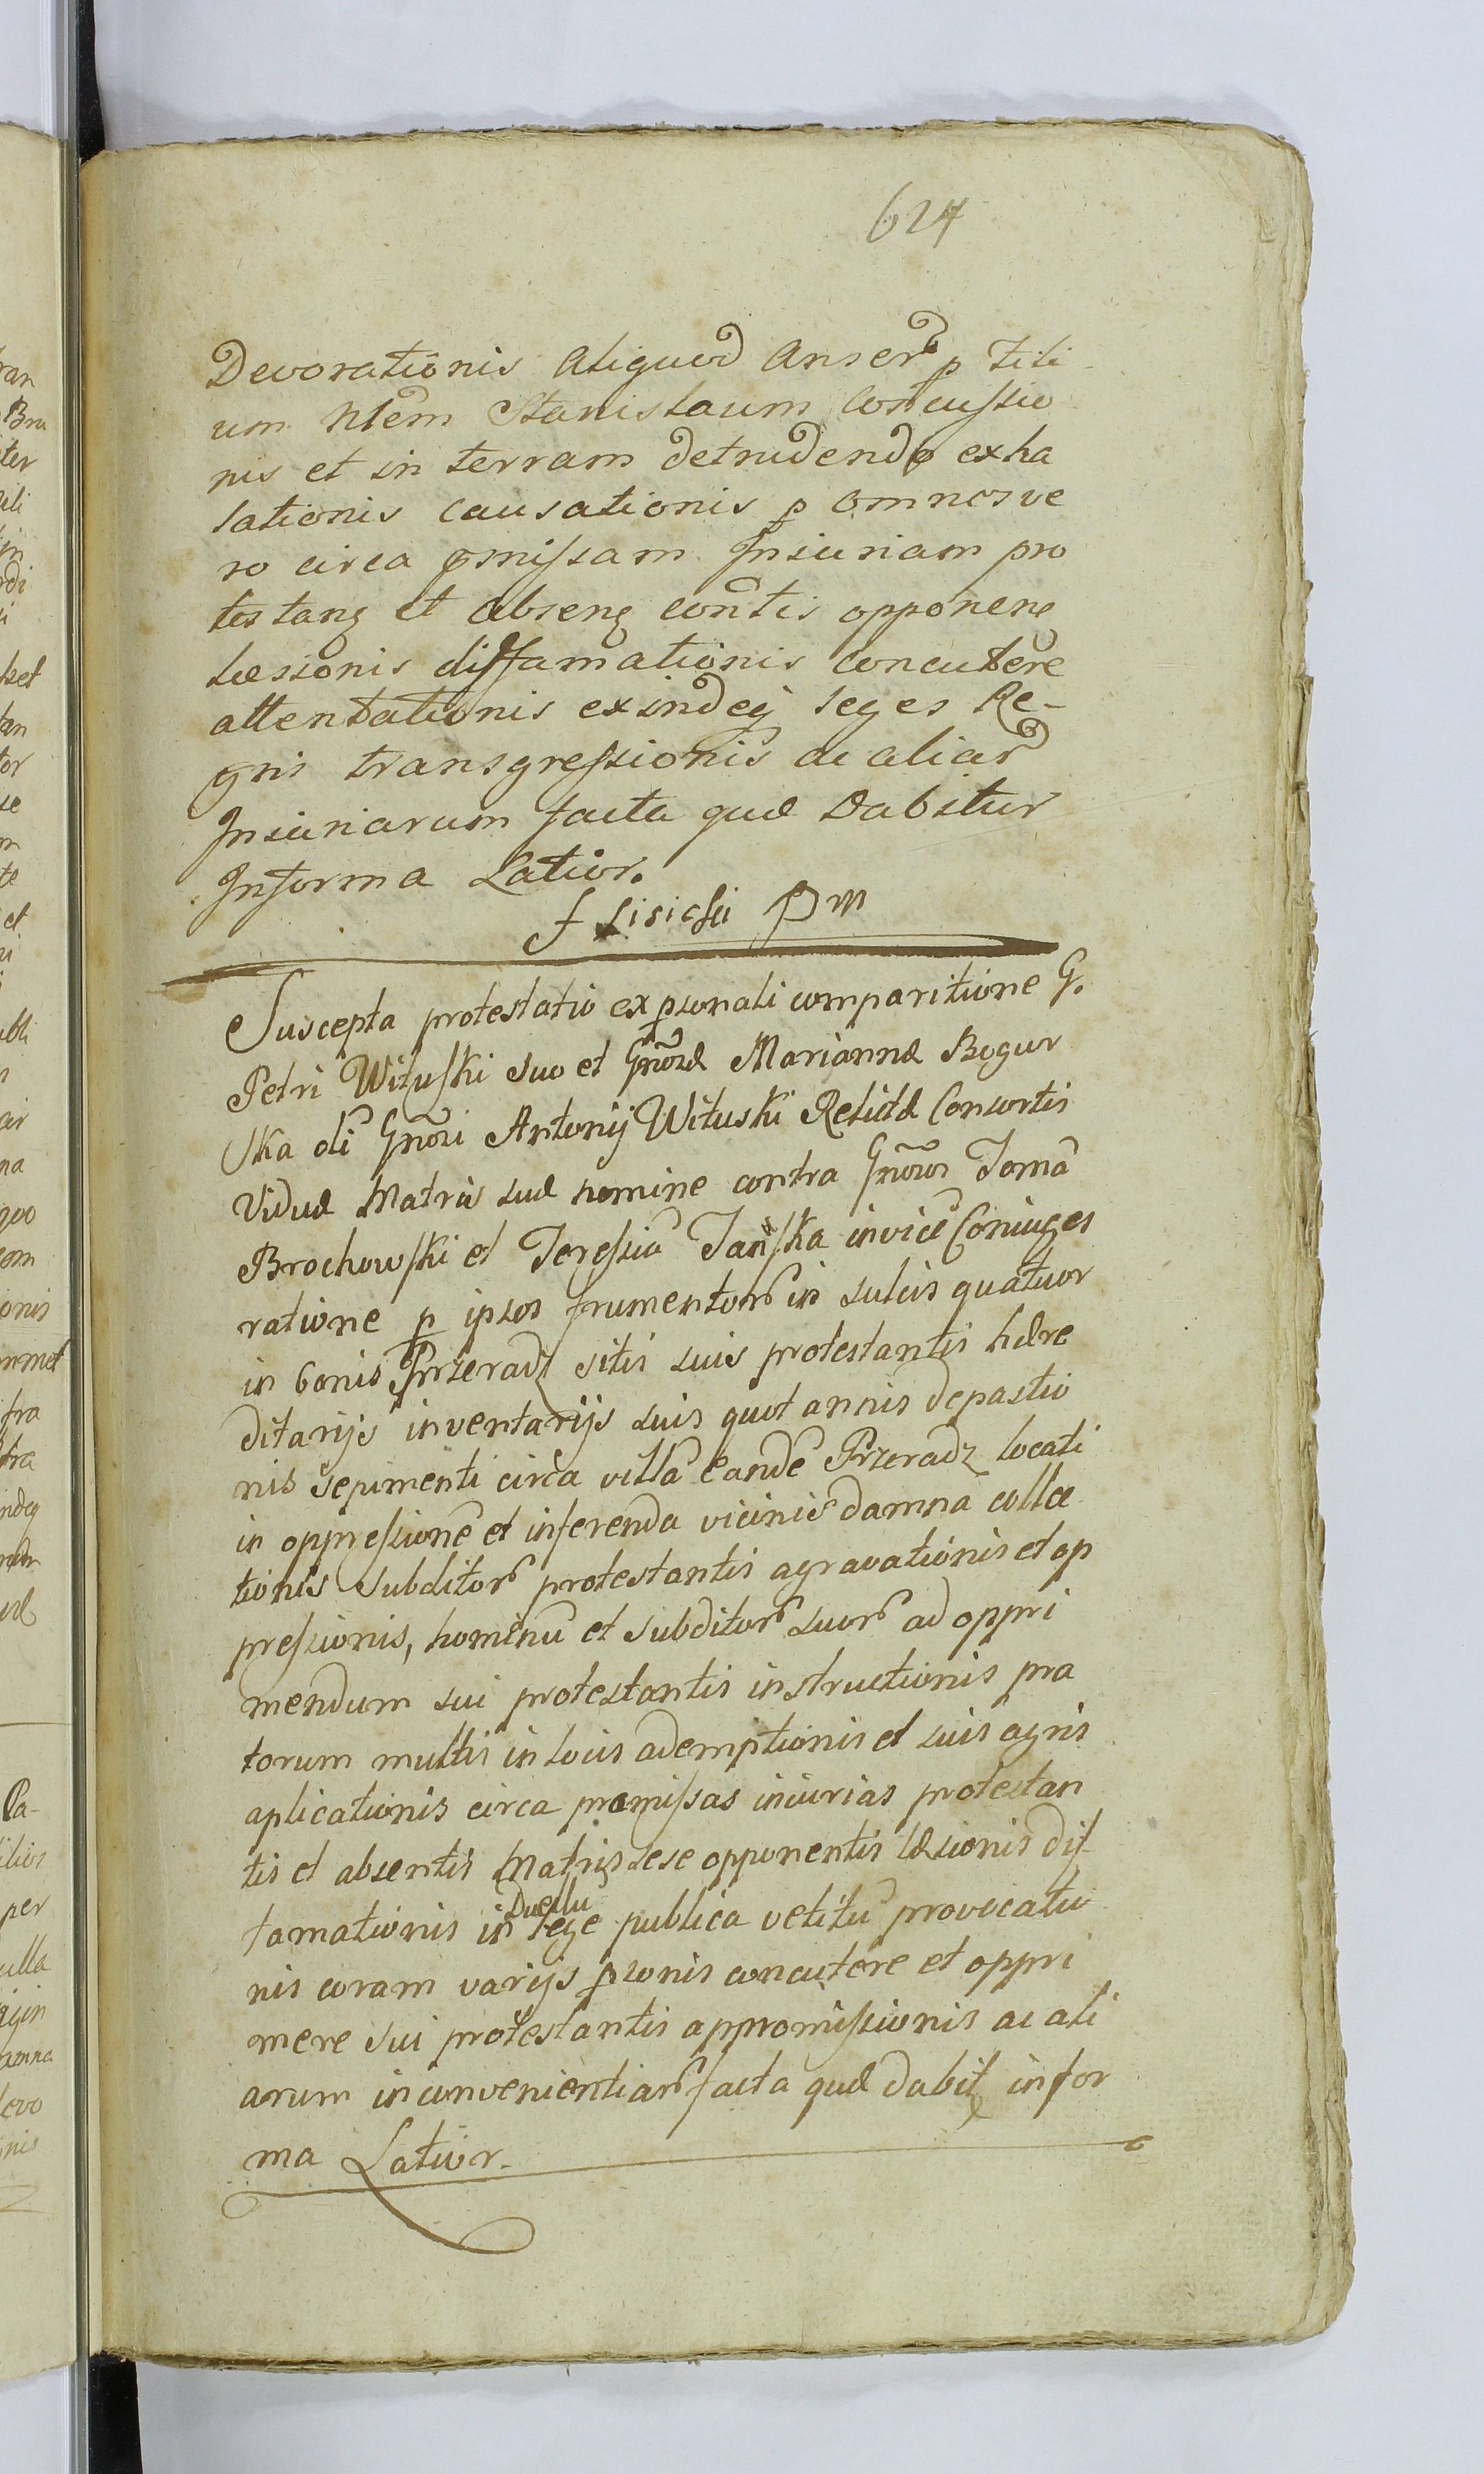 624
Devorationis aliquod anser p fili
um Ntem Stanislaum concussio
nis et in terram detrudendo exha
lationis causationis p omnes ve
ro circa pmissam Iniuriam pro
testang et abseng contis opponene
læsionis diffamationis concutere
attentationis exindeq leges Re-
gni transgressionis ac aliar
Iniuriarum facta quæ Dabitur
Informa Latior.
f Lisicki Pm
Suscepta protestatio ex psonali comparitione G.
Petri Wituski suo et Gnosæ Mariannæ Bogur
ska oli Gnosi Antonij Wituski Relictæ Consortis
Viduæ Matris suæ nomine contra Gnosos Toma
Brochowski et Teressia Janska invice Coniuges
ratione p ipsos frumentor in sulcis quatuor
in bonis Przeradz sitis suis protestantis hære
ditarijs inventarijs suis quot annis depastio
nis sepimenti circa villa eande Przeradz locati
in oppressione et inferenda vicinis damna colla
tionis subditor protestantis agravationis et op
pressionis, hominu et subditor suor ad oppri
mendum sui protestantis instructionis pra
torum multis in locis ademptionis et suis agris
aplicationis circa præmissas iniurias protestan
tis et absentis Matris sese opponentis læsionis dif
Duellu
famationis in lege publica vetitu provocatio
nis coram varijs psonis concutere et oppri
mere sui protestantis appromissionis ac ali
arum inconvenientiar facta quæ dabit infor
ma Latior.